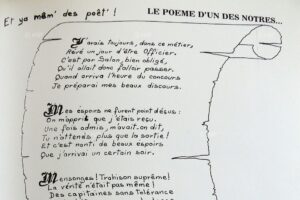 Et ya mêm' des poët' !
LE POEME D'UN DES NOTRES...
J'avais toujours, dans ce métier,
Rêvé un jour d'être Officier.
C'est par Salon, bien obligé,
Qu'il allait donc falloir passer.
Quand arriva l'heure du concours
Je préparai mes beaux discours.
Mes espoirs ne furent point déçus :
On m'apprit que j'étais reçu.
Une fois admis, m'avait-on dit,
Tu n'attends plus que la sortie !
Et c'est nanti de beaux espoirs
Que j'arrivai un certain soir.
Mensonges ! Trahison suprême !
La vérité n'était pas même !
Des capitaines sans tolérance